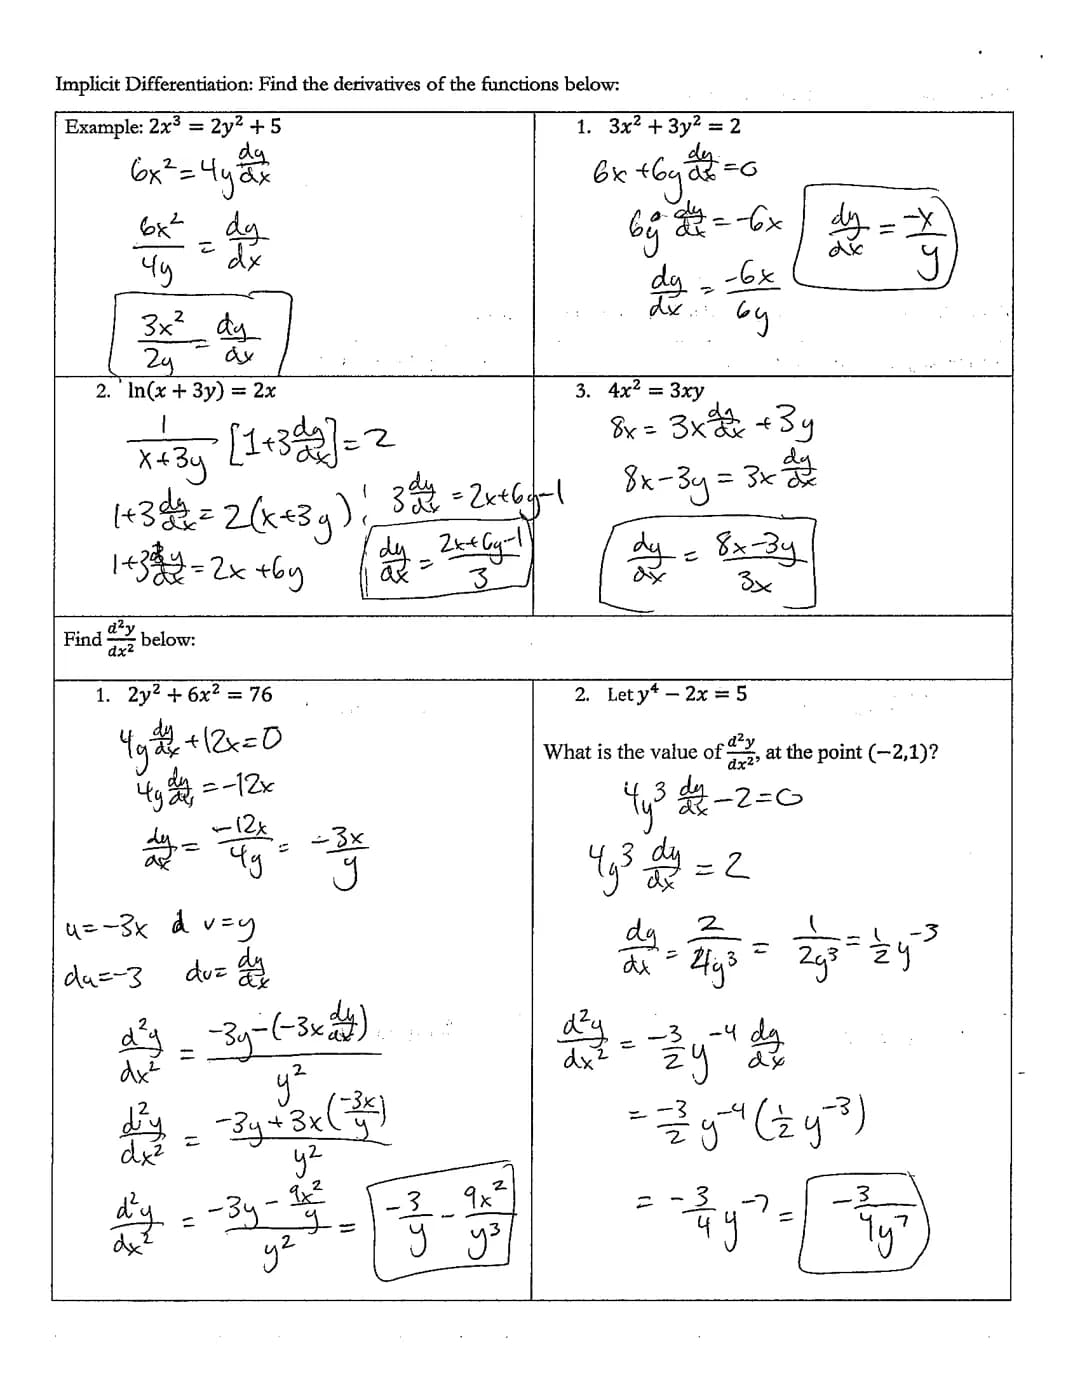 Implicit Differentiation: Find the derivatives of the functions below:
Example: 2x³ = 2y² + 5
6x² = 4y dy/dx
6x²/4y = dy/dx
3x²/2y = dy/dx
1. 3x² + 3y² = 2
6x + 6y dy/dx = 0
6y dy/dx = -6x
dy/dx = -6x/6y
dy/dx = -x/y
2. ln(x + 3y) = 2x
1/(x+3y) [1+3 dy/dx] = 2
1+3 dy/dx = 2(x+3y)
1+3 dy/dx = 2x+6y
3 dy/dx = 2x+6y-1
dy/dx = (2x+6y-1)/3
3. 4x² = 3xy
8x = 3x dy/dx + 3y
8x-3y = 3x dy/dx
dy/dx = (8x-3y)/3x
Find d²y/dx² below:
1. 2y² + 6x² = 76
4y dy/dx + 12x = 0
4y dy/dx = -12x
dy/dx = -12x/4y = -3x/y
u=-3x d v=y
du=-3 dv= dy/dx
d²y/dx² = (-3y-(-3x dy/dx))/y²
d²y/dx² = (-3y+3x(-3x/y))/y²
d²y/dx² = (-3y - 9x²/y)/y² = -3/y - 9x²/y³
2. Let y⁴ − 2x = 5
What is the value of d²y/dx², at the point (−2,1)?
4y³ dy/dx - 2 = 0
4y³ dy/dx = 2
dy/dx = 2/4y³ = 1/2y³ = 1/2 y⁻³
d²y/dx² = -3/2 y⁻⁴ dy/dx
= -3/2 y⁻⁴ (1/2 y⁻³)
= -3/4 y⁻⁷ = -3/4y⁷